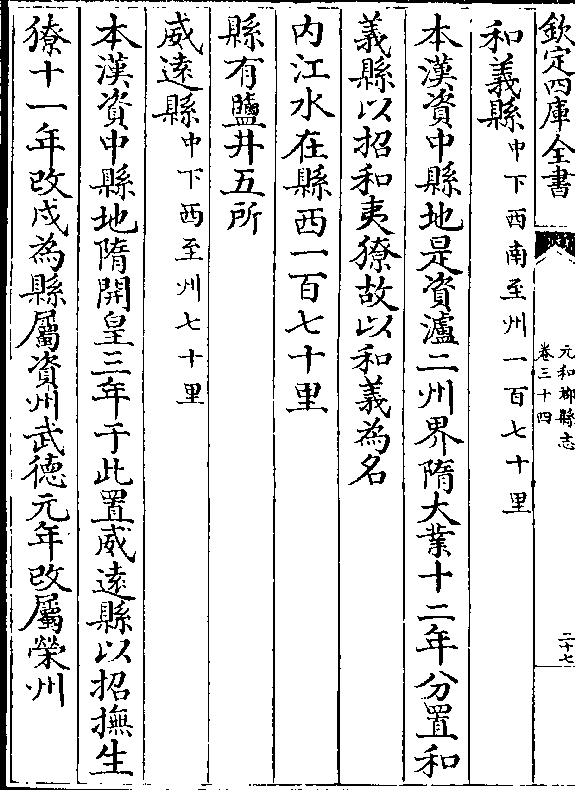 欽定四庫全書
元和郡縣志
卷三十四
二十七
和義縣中下西南至州一百七十里
本漢資中縣地是資瀘二州界隋大業十二年分置和
義縣以招和夷獠故以和義為名
内江水在縣西一百七十里
縣有鹽井五所
威逺縣中下西至州七十里
本漢資中縣地隋開皇三年于此置威逺縣以招撫生
獠十一年改戍為縣屬資州武徳元年改屬榮州